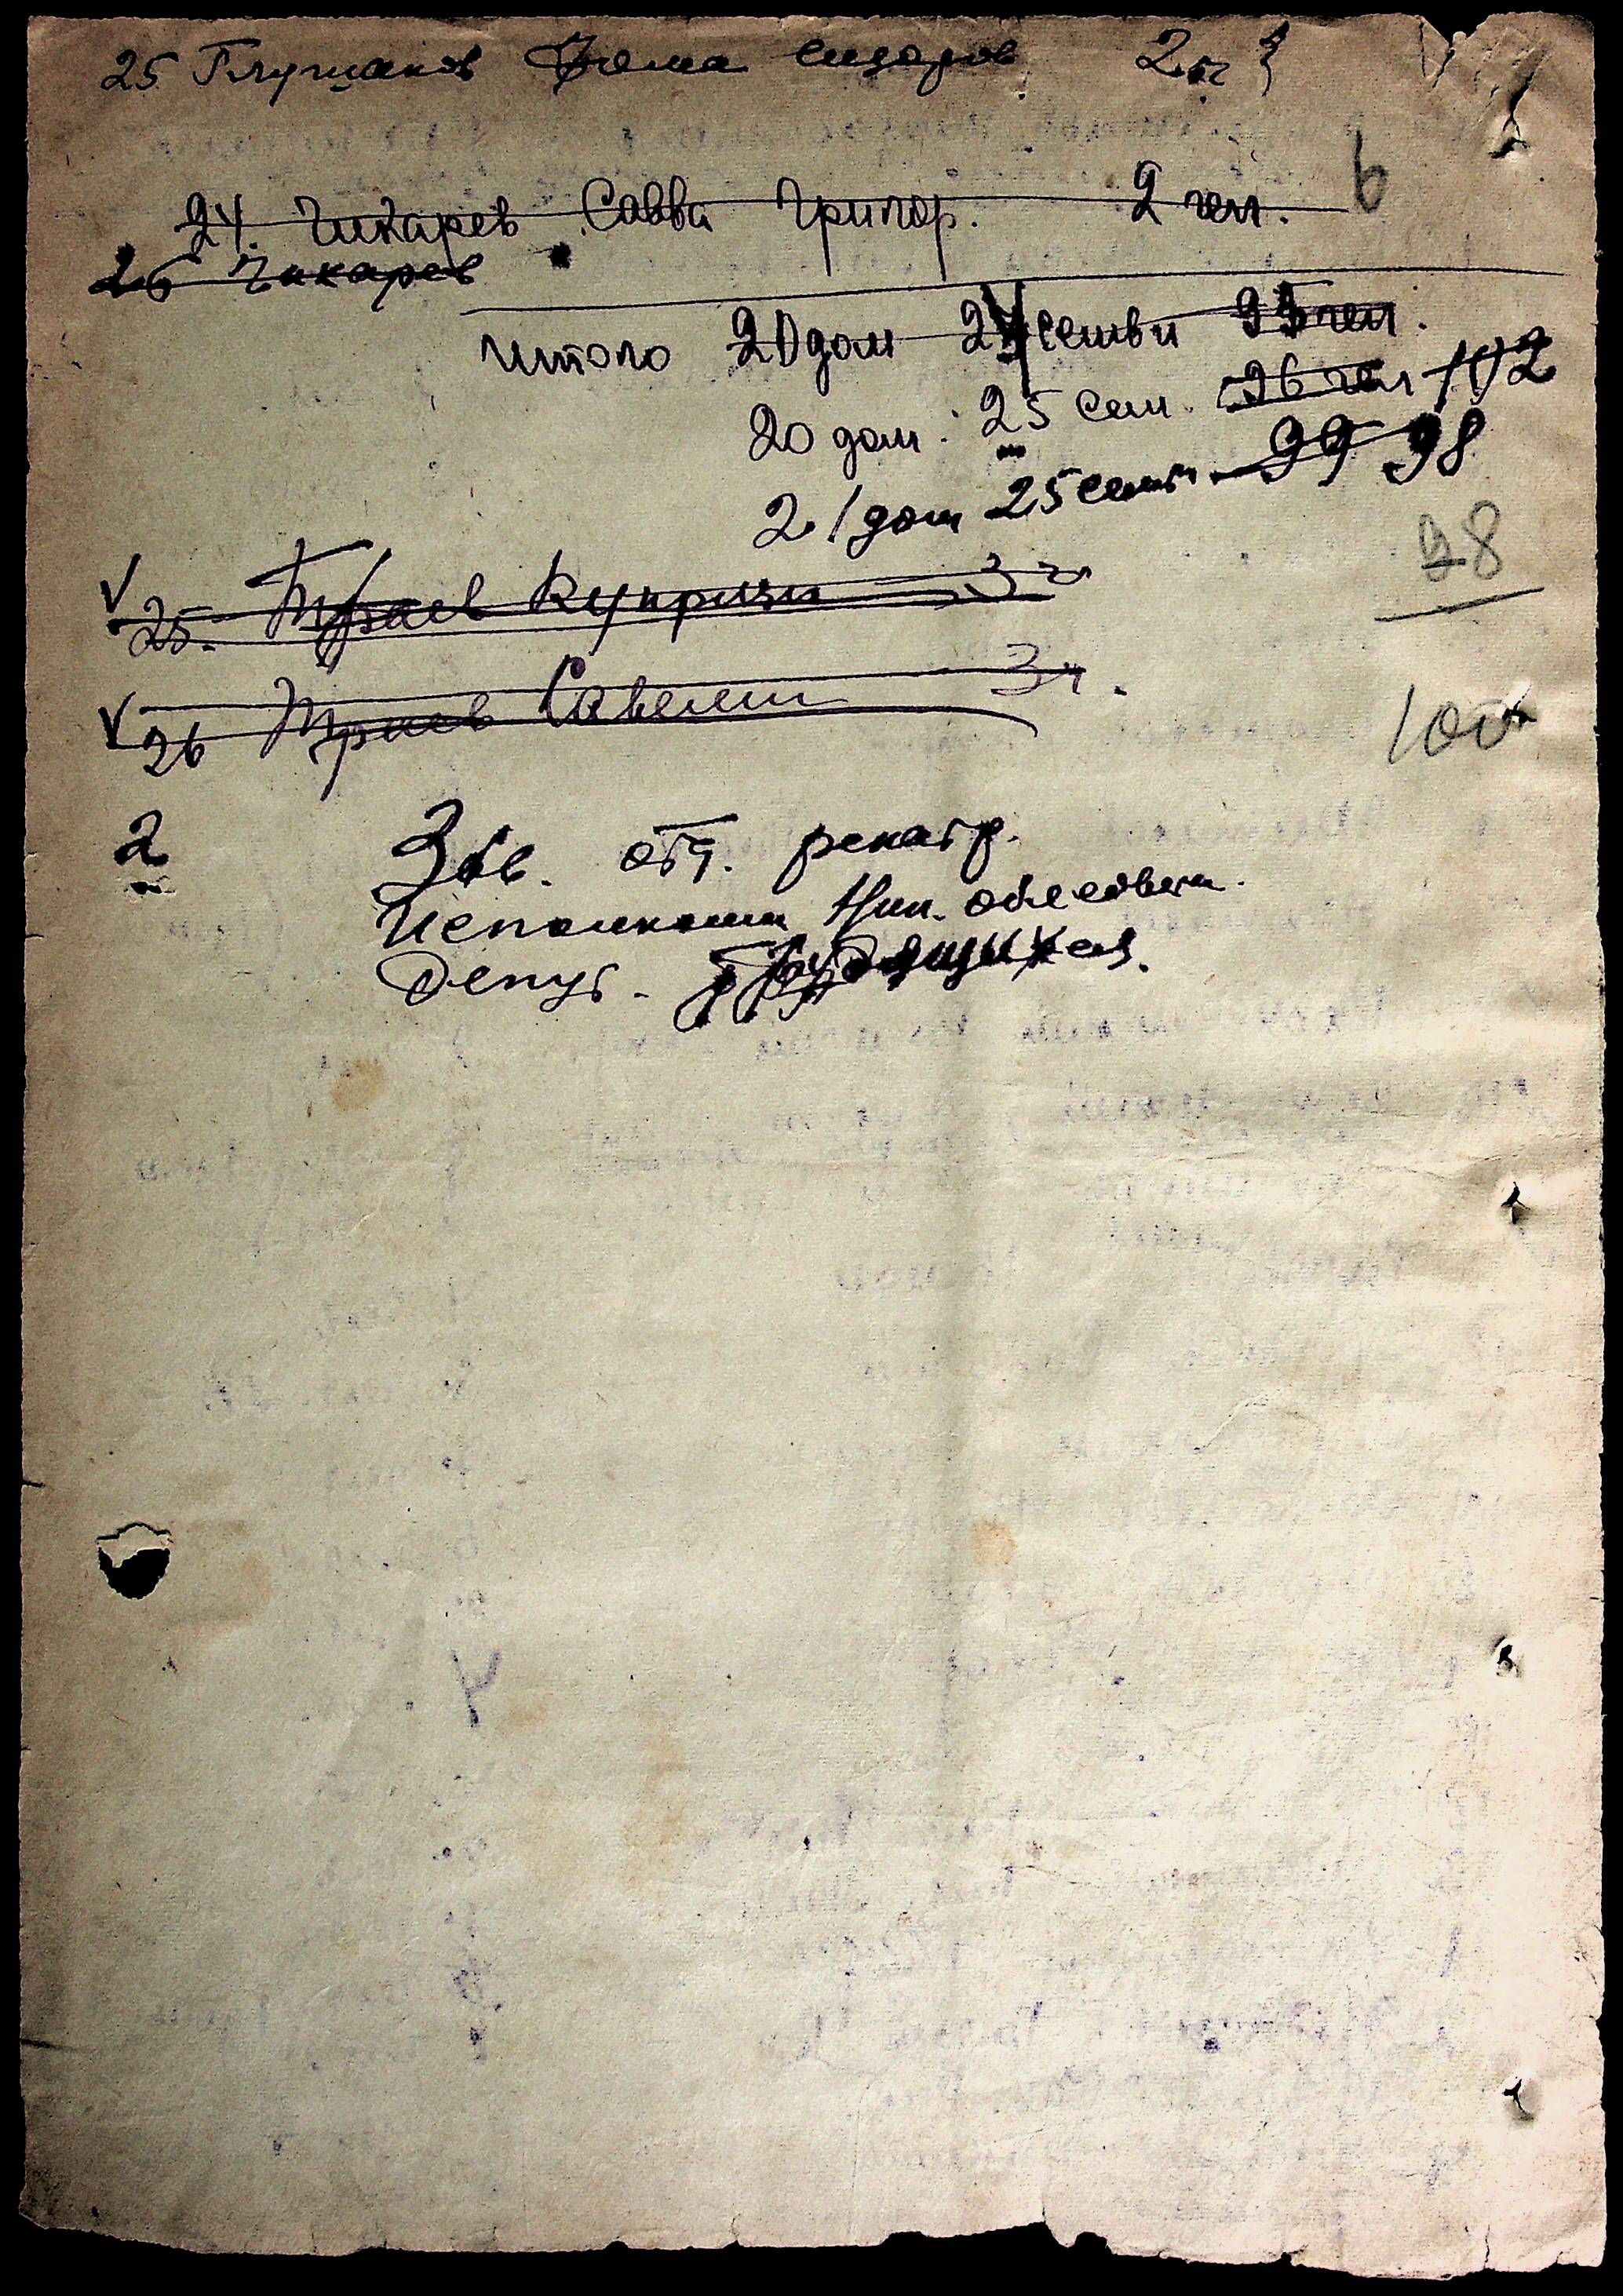 25 Глущаков Фома Сидоров 2 ч
6
24. Чикарев Савва Григор. 2 чел.
26 Чикарев
Итого 20 дом 24 семьи 95 чел.
20 дом. 25 сем. 96 чел 102
21 дом 25 семь 99 98
98
25. Купріян 3 ч
26 Савелий 3 ч.
100
2 Зав. отд.
Исполкома Ник.
Депут. Трудящихся.